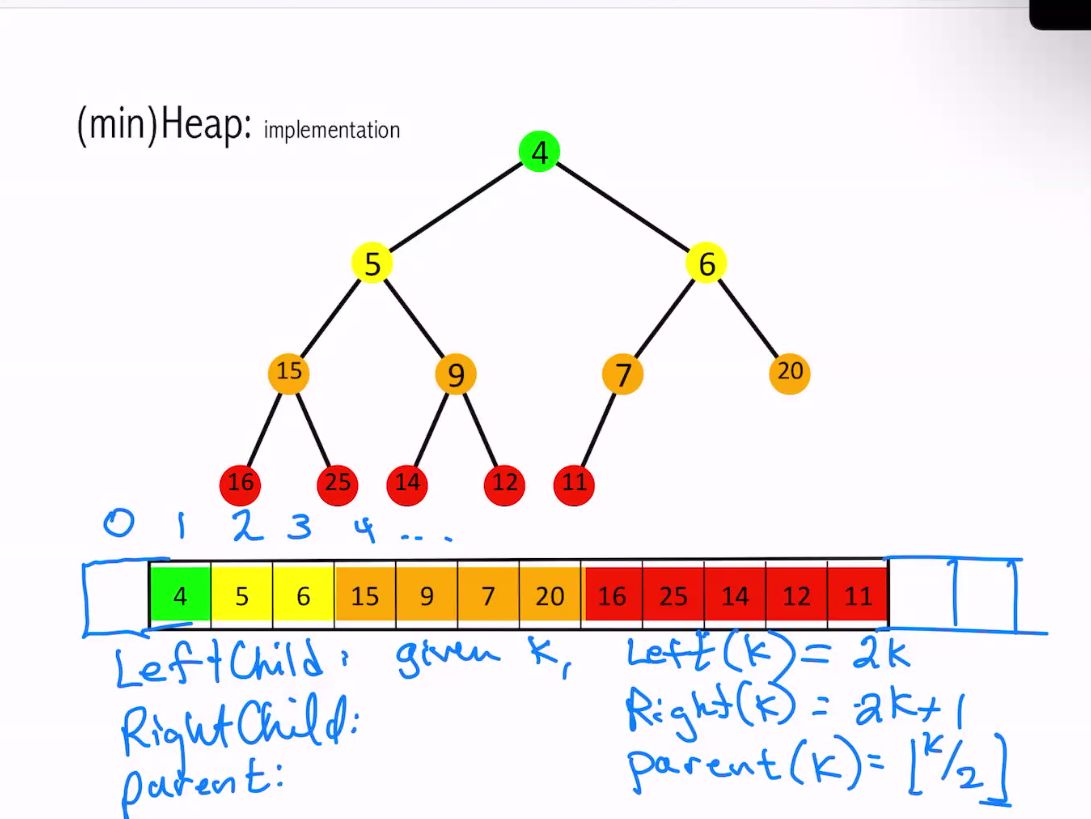 (min)Heap: implementation
4
5 6
15 9 7 20
16 25 14 12 11
0 1 2 3 4 ...
4 5 6 15 9 7 20 16 25 14 12 11
LeftChild: given k, Left(k) = 2k
RightChild: Right(k) = 2k+1
parent: parent(k) = ⌊k/2⌋